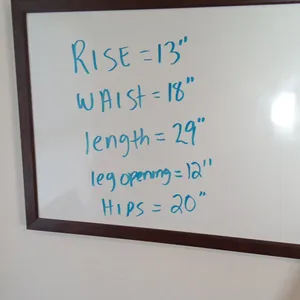 RISE = 13"
WAISt = 18"
length = 29"
leg opening = 12"
HIPS = 20"